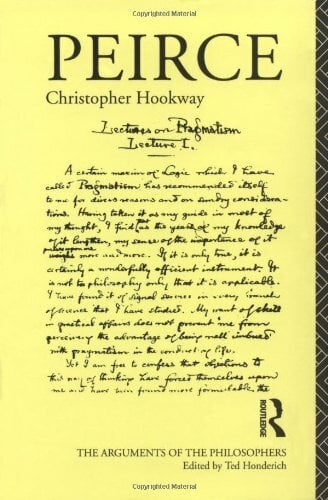 PEIRCE
Christopher Hookway
Lectures on Pragmatism
Lecture I.
A certain maxim of Logic which I have
called Pragmatism has recommended itself
to me for divers reasons and on sundry considera-
tions. Having taken it as my guide in most of
my thought, I find that as the years of my knowledge
of it lengthen, my sense of the importance of it
presses upon me more and more. If it is only true, it is
certainly a wonderfully efficient instrument. It
is not to philosophy only that it is applicable.
I have found it of signal service in every branch
of science that I have studied. My want of skill
in practical affairs does not prevent me from
perceiving the advantage of being well imbued
with pragmatism in the conduct of life.
Yet I am free to confess that objections to
this way of thinking have forced themselves upon
me and have been found more formidable the
ROUTLEDGE
THE ARGUMENTS OF THE PHILOSOPHERS
Edited by Ted Honderich